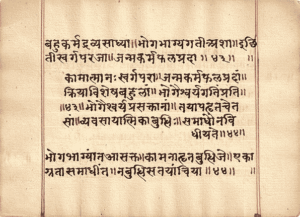 बहुकर्मद्रव्यसाध्या॥भोगभाग्यगतीव्यशा॥इछि
तीस्वर्गपरजा॥जन्मकर्मफलप्रदा॥४३॥
कामात्मानःस्वर्गपरा॥जन्मकर्मफलप्रदां
क्रियाविशेषबहुलां॥भोगैश्वर्यगतिंप्रति॥
॥४३॥भोगैश्वर्यप्रसक्तानां॥तयापहृतचेत
सां॥व्यवसायात्मिकाबुद्धिः॥समाधौनवि
धीयते॥४४॥
भोगभाग्यांनआसक्त॥कामनाहृतबुद्धिजे॥एका
ग्रतासमाधींत॥नबुद्धिसतयांचिया॥४४॥